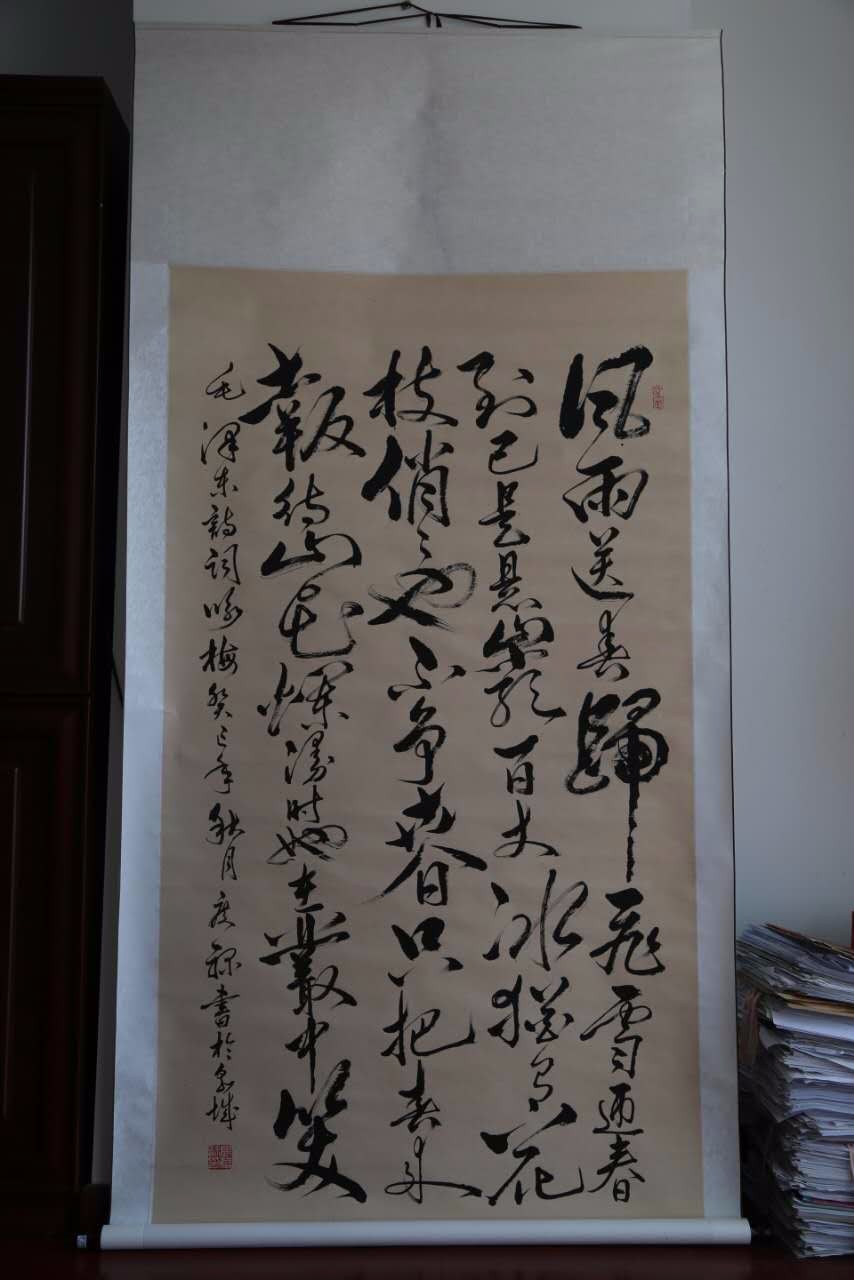 風雨送春歸飛雪迎春
到已是懸崖百丈冰猶有花
枝俏俏也不争春只把春来
報待到山花爛漫时她在叢中笑
毛泽东詩词咏梅癸巳年秋月庆禄書於泉城